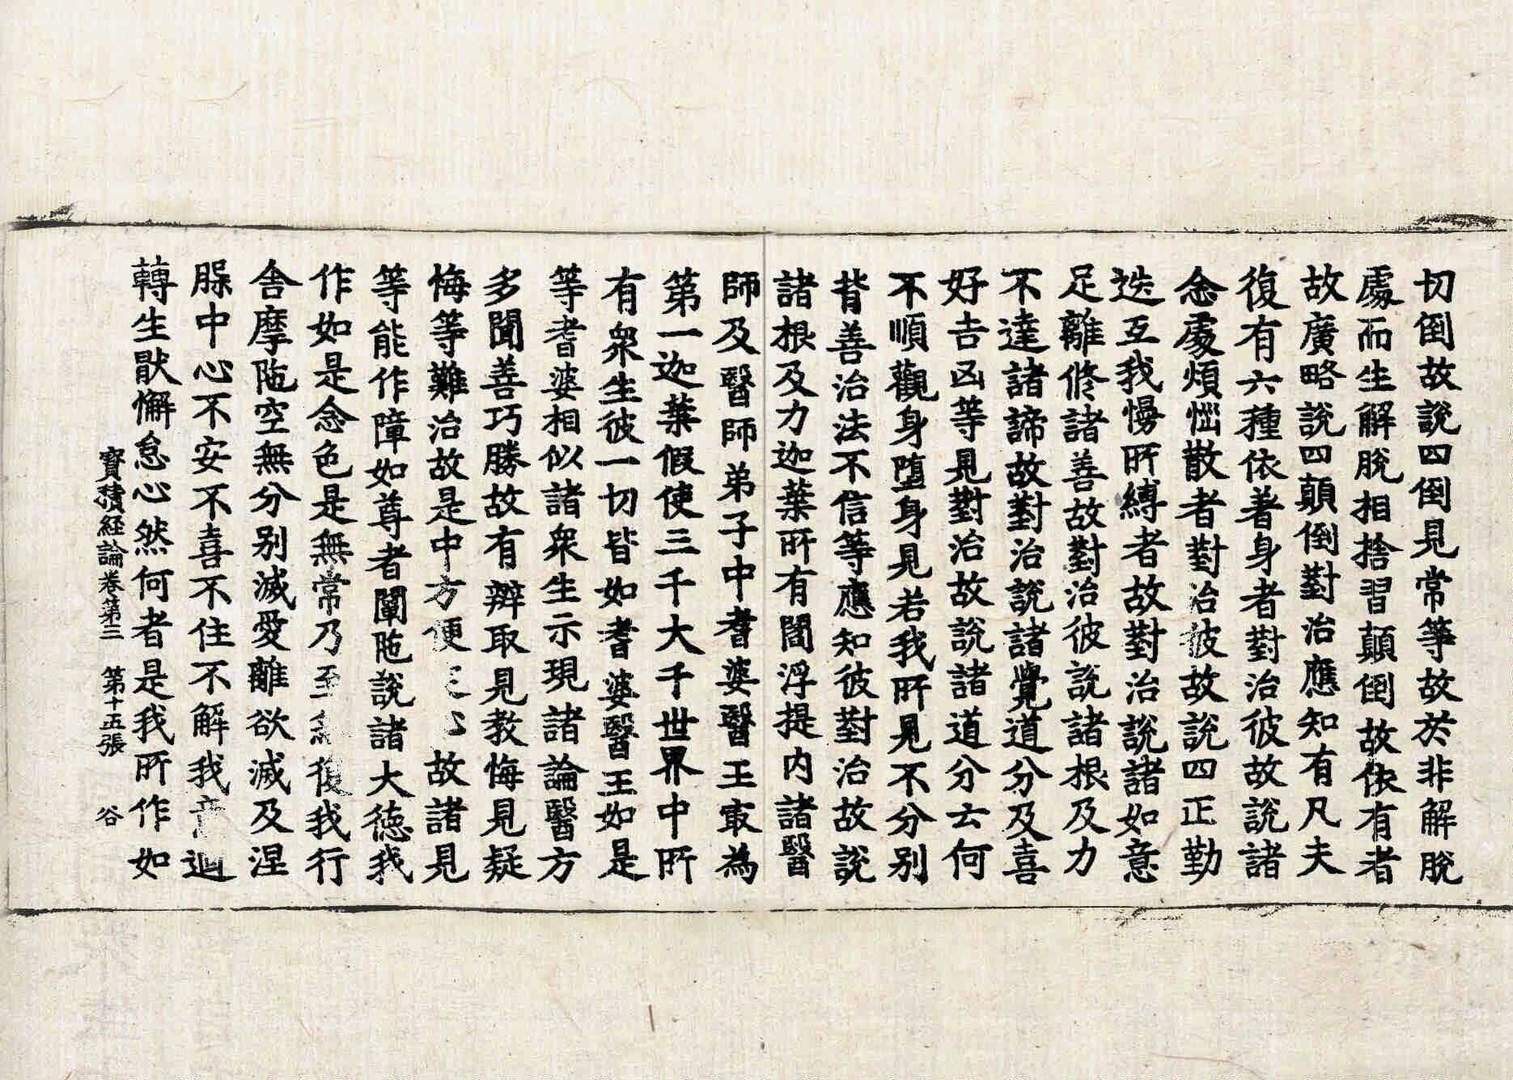 切倒故說四倒見常等故於非解脫
處而生解脫相捨習顛倒故依有者
故廣略說四顛倒對治應知有凡夫
復有六種依著身者對治彼故說諸
念處煩惱散者對治彼故說四正勤
迭互我慢所縛者故對治說諸如意
足離修諸善故對治彼說諸根及力
不達諸諦故對治說諸覺道分及喜
好吉凶等見對治故說諸道分云何
不順觀身墮身見若我所見不分別
背善治法不信等應知彼對治故說
諸根及力迦葉所有閻浮提內諸醫
師及醫師弟子中耆婆醫王㝡為
第一迦葉假使三千大千世界中所
有衆生彼一切皆如耆婆醫王如是
等耆婆相似諸衆生示現諸論醫方
多聞善巧勝故有辯取見教悔見疑
悔等難治故是中方便故諸見
等能作障如尊者闡陁說諸大德我
作如是念色是無常乃至復我行
舍摩陁空無分別滅愛離欲滅及涅
脲中心不安不喜不住不解我意迴
轉生猒懈怠心然何者是我所作如
寶積経論卷第三 第十五張 谷